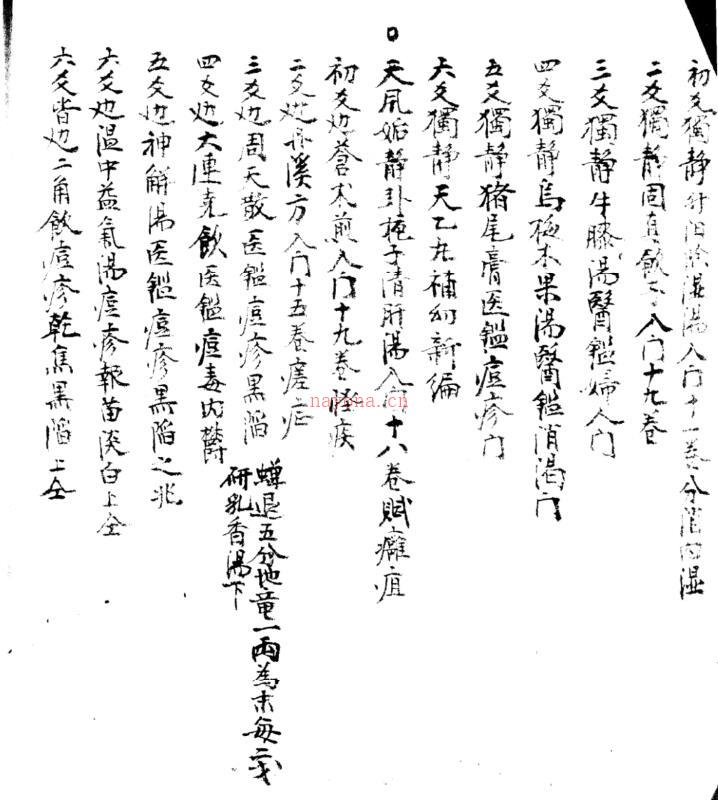 初爻獨靜升阳除湿湯入门十一卷分消内湿
二爻獨靜固真飲子入门十九卷
三爻獨靜牛膝湯醫鑑婦人门
四爻獨靜烏梅木果湯醫鑑消渴门
五爻獨靜猪尾膏医鑑痘疹门
六爻獨靜天乙丸補幼新编
天風姤靜卦梔子清肝湯入门十八卷賦癰疽
初爻边蒼术煎入门十九卷怪疾
二爻边丹溪方入门十五卷瘧
三爻边周天散医鑑痘疹黑陷
蟬退五分地竜一兩為末每二戋
研乳香湯下
四爻边大連尭飲医鑑痘毒
五爻边神解湯医鑑痘疹黑陷之兆
六爻边温中益氣湯痘疹報苗淡白上仝
六爻皆边二角飲痘疹乾焦黒陷上仝
naypha.cn